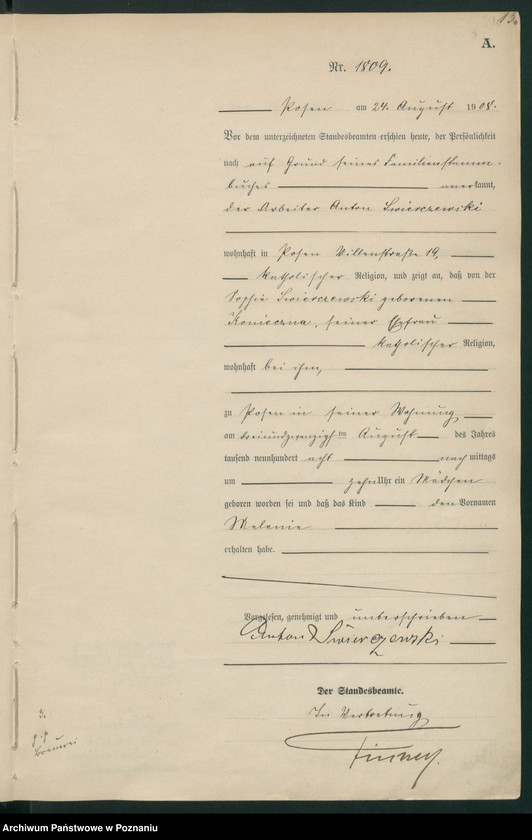 A.
Nr. 1809.
Posen am 24. August 1908.
Vor dem unterzeichneten Standesbeamten erschien heute, der Persönlichkeit
nach auf Grund seines Familienstamm-
buches anerkannt,
der Arbeiter Anton Swierczewski
wohnhaft in Posen 19,
katholischer Religion, und zeigt an, daß von der
Sophie Swierczewski geborenen
Konieczna, seiner Ehefrau
katholischer Religion,
wohnhaft bei ihm,
zu Posen in seiner Wohnung
am dreiundzwanzigsten August des Jahres
tausend neunhundert acht nachmittags
um zehn Uhr ein Mädchen
geboren worden sei und daß das Kind den Vornamen
Melanie
erhalten habe.
Vorgelesen, genehmigt und unterschrieben
Anton Swierczewski
Der Standesbeamte.
In Vertretung
Archiwum Państwowe w Poznaniu